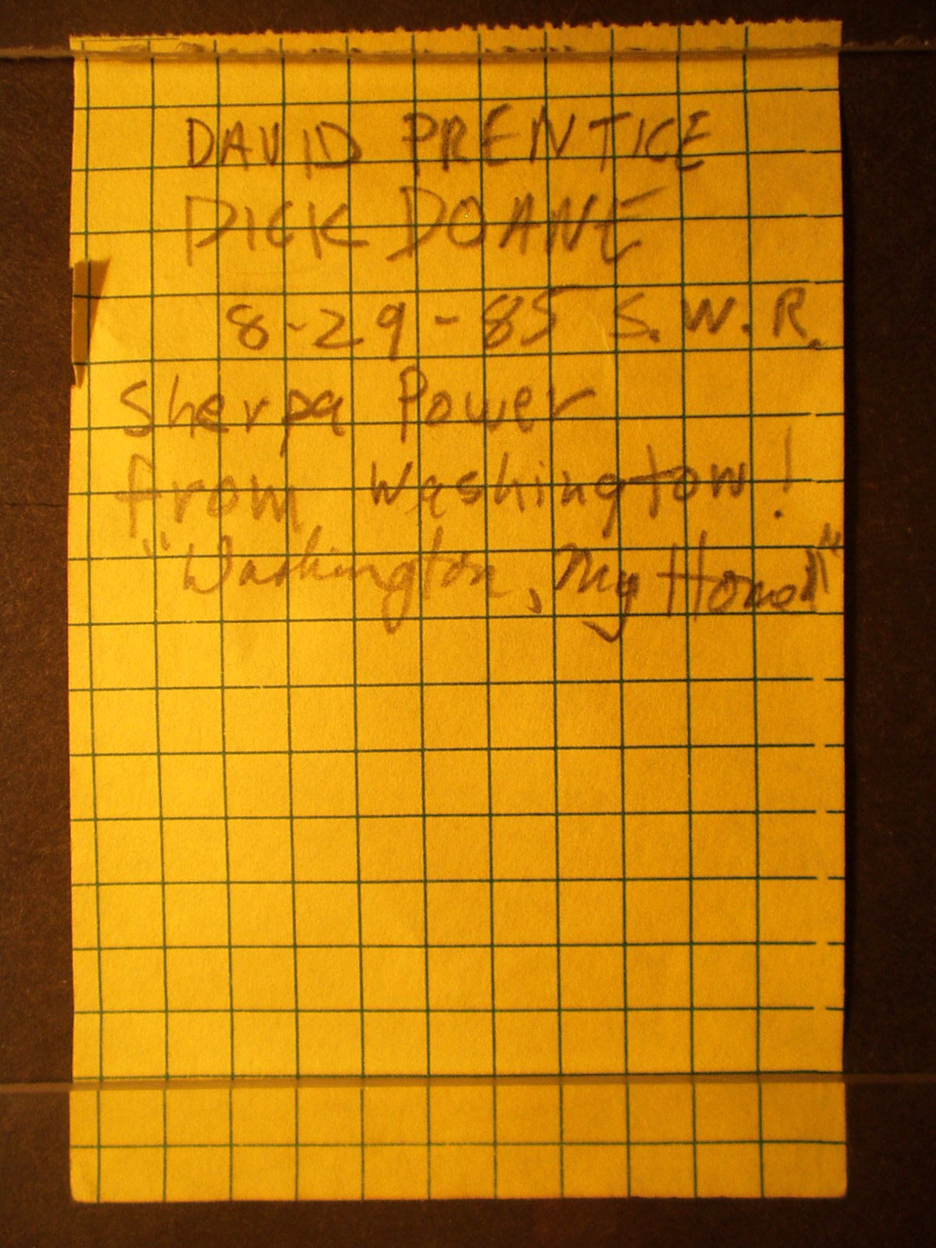 DAVID PRENTICE
DICK DOANE
8-29-85 S.W.R.
Sherpa Power
from Washington!
"Washington, My Home"